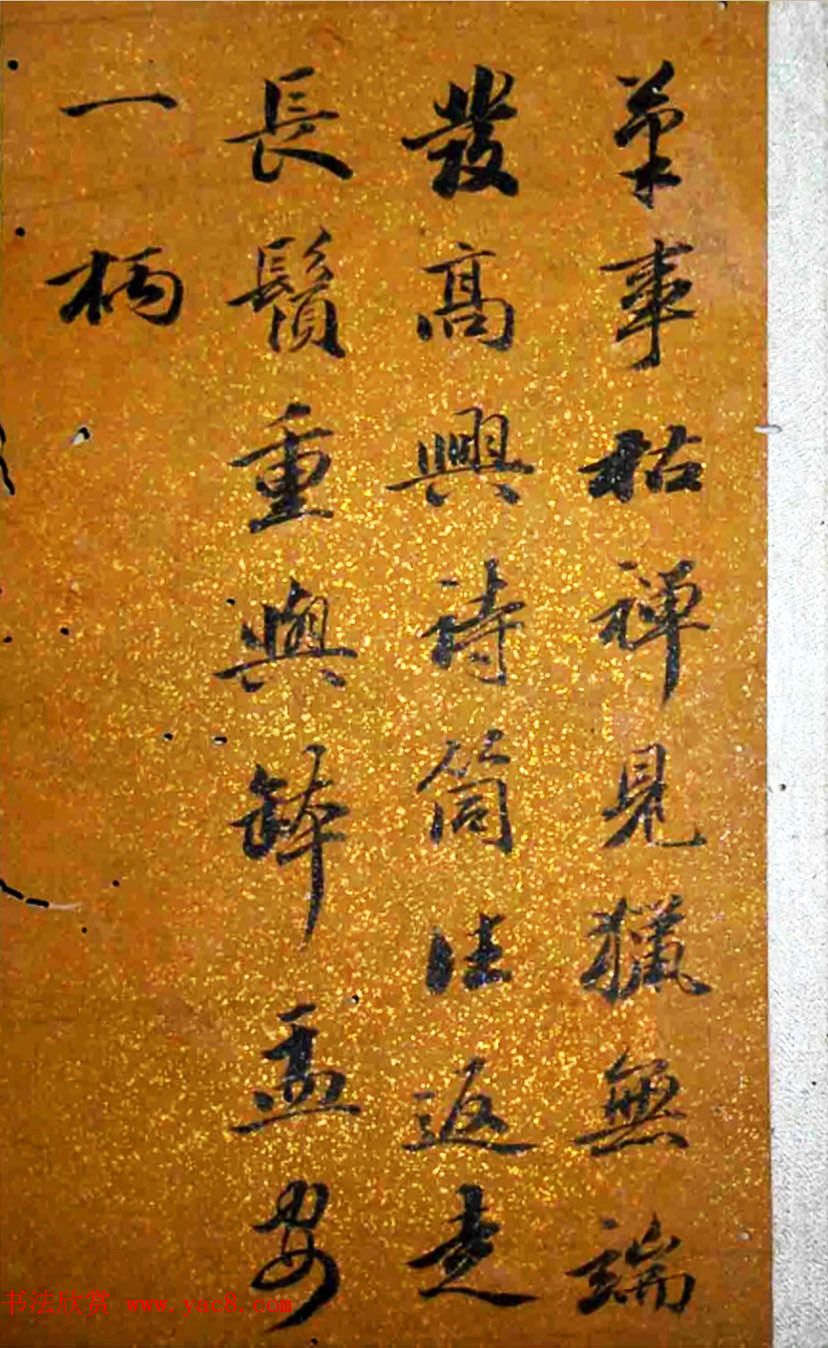 苐事枯禅見獵無端
發高興詩筒往返走
長鬚重與缽盂安
一柄
书法欣赏 www.yac8.com